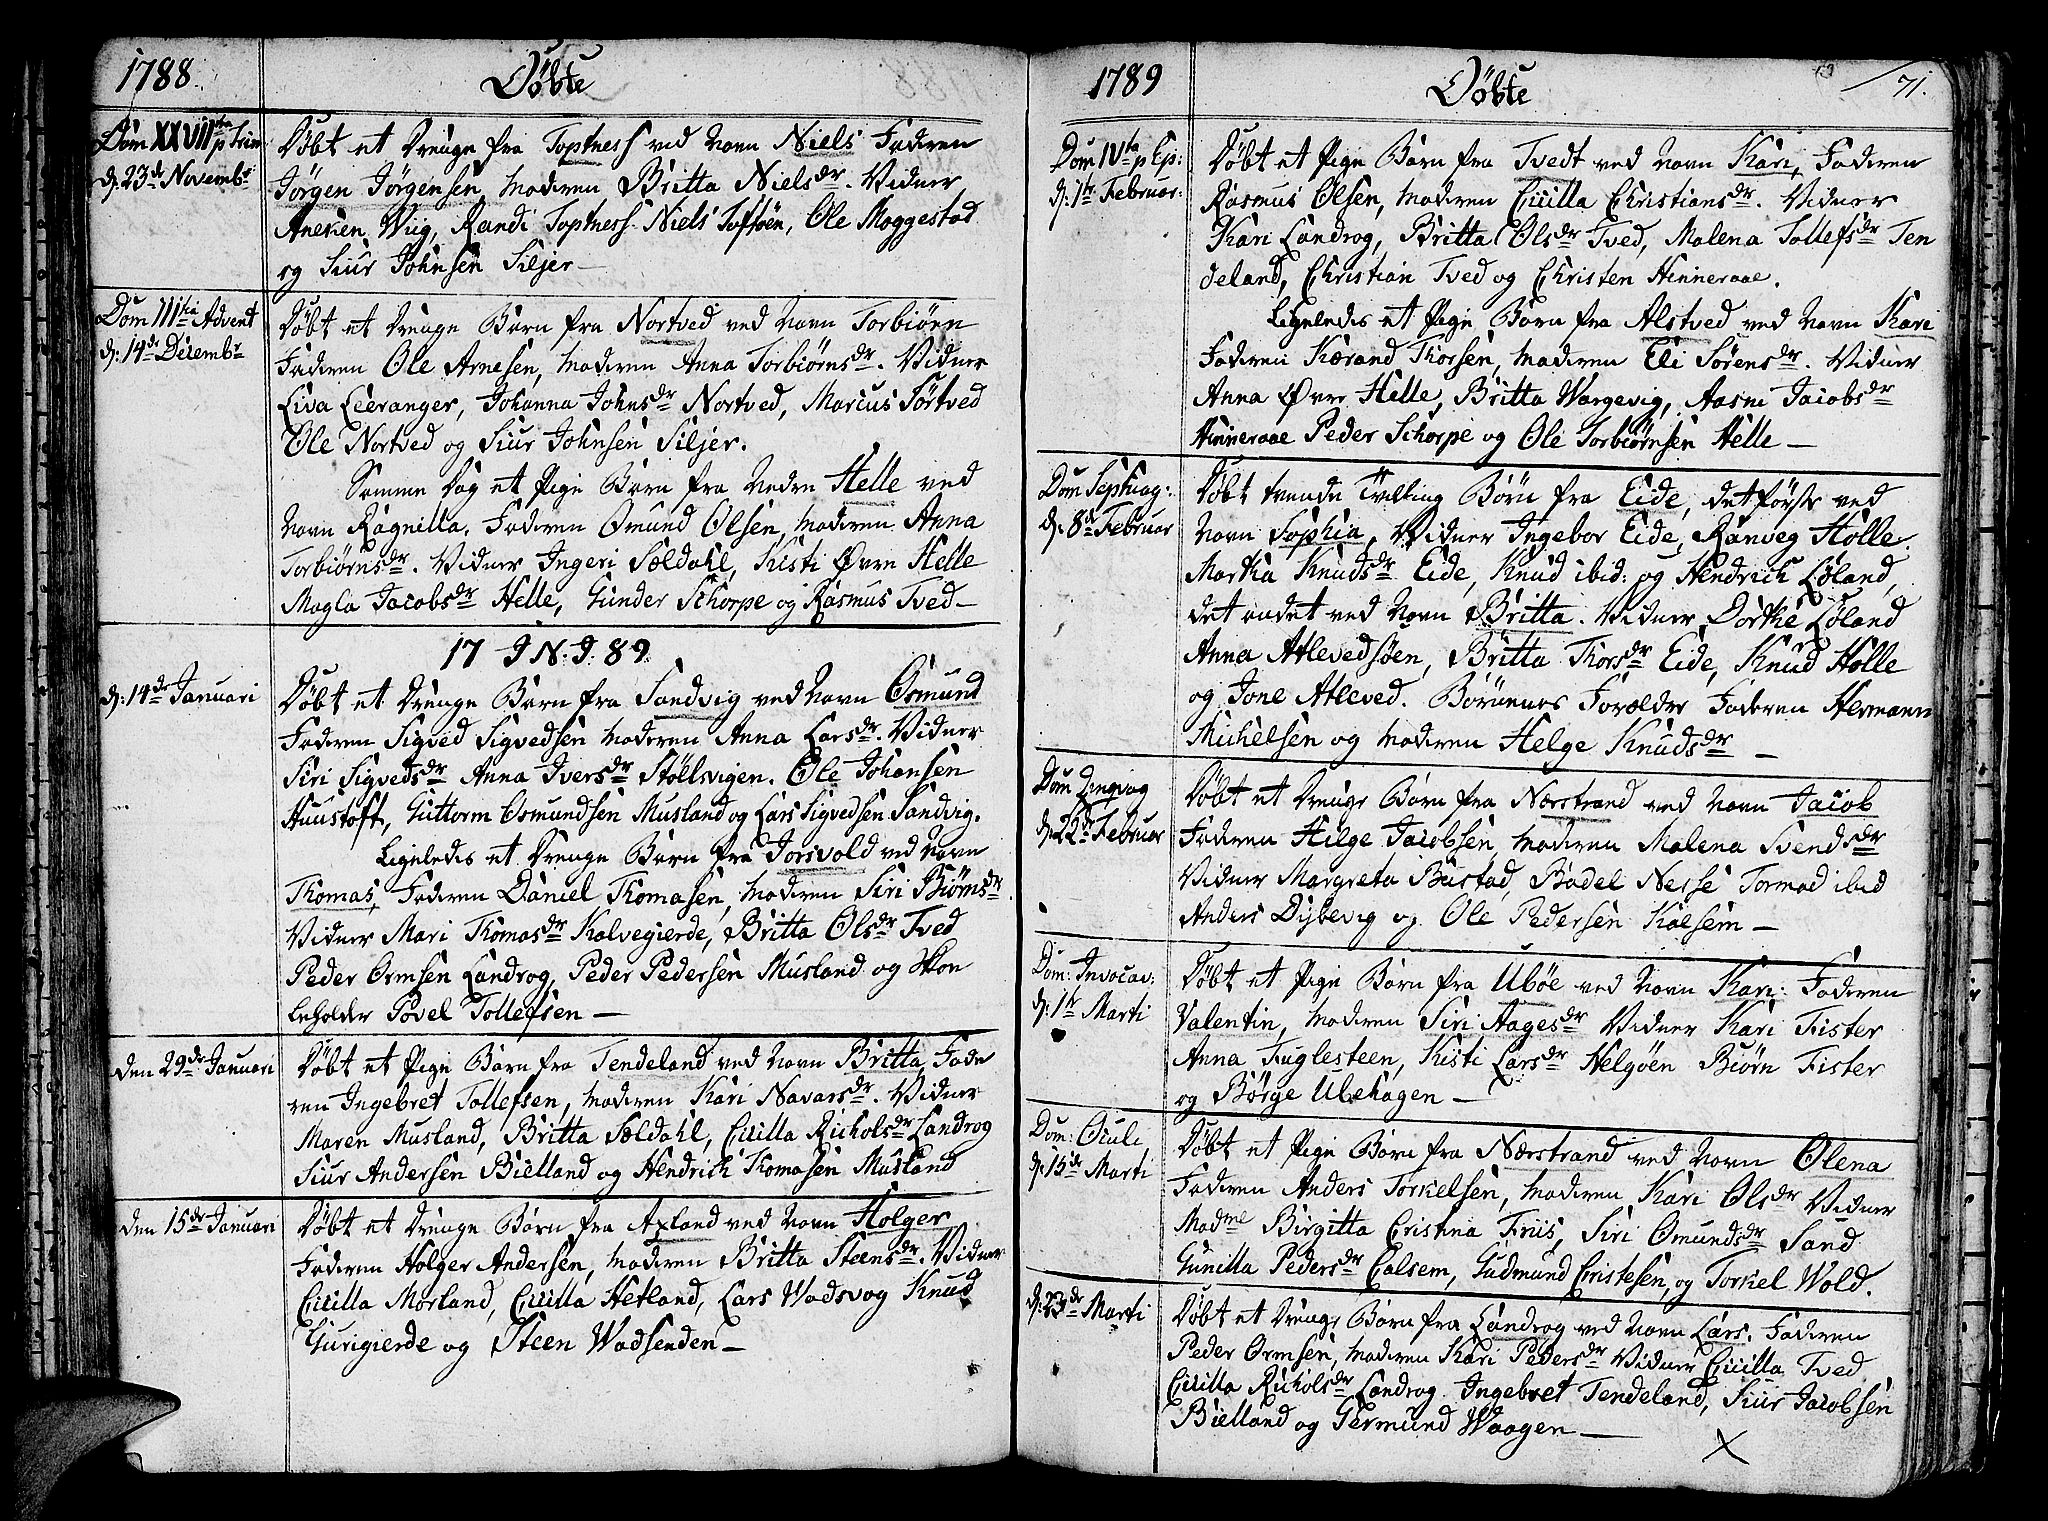 1788
Döbte
Dom XXVII ma p Trin
d: 23 de Novembr
Döbt et Drenge fra Toptness ved Navn Niels Faderen
Jörgen Jörgensen, Moderen Britta Niels dr. Vidner
Aneken Wiig, Randi Toptness Niels Toftöen, Ole Maggestad
og Siur Johnsen Siljer
Dom III tia Advent
d: 14 de Decembr
Döbt et Drenge Barn fra Nortved ved Navn Torbiörn
Faderen Ole Arnesen, Moderen Anna Torbiörns dr. Vidner
Liva Leeranger, Johanna Johns dr Nortved, Marcus Törtved
Ole Nortved og Siur Johnsen Siljer.
Samme Dag et Pige Barn fra Nedre Helle ved
Navn Ragnilla. Faderen Omund Olsen, Moderen Anna
Torbiörns dr. Vidner Ingeri Sældahl, Kisti Övre Helle
Magla Jacobs dr Helle, Gunder Schorpe og Rasmus Tved
17 J. N. J. 89
d: 14 de Januari
Döbt et Drenge Barn fra Sandvig ved Navn Osmund
Faderen Sigved Sigvedsen Moderen Anna Lars dr. Vidner
Siri Sigveds dr Anna Ivers dr Stöllsvigen. Ole Johansen
Huustoft, Guttorm Osmundsen Musland og Lars Sigvedsen Sandvig.
Ligeledes et Drenge Barn fra Jorsvold ved Navn
Thomas, Faderen Daniel Thomasen, Moderen Siri Biörns dr
Vidner Mari Thomas dr Kalvegierde, Britta Ols dr Tved
Peder Ormsen Landrog, Peder Pedersen Musland og Skou
leholder Povel Tollefsen
den 29 de Januari
Döbt et Pige Barn fra Tendeland ved Navn Britta Fade
ren Ingebret Tollefsen, Moderen Kari Navars dr. Vidner
Maren Musland, Britta Sældahl, Cicilla Richols dr Landrog
Siur Andersen Bielland og Hendrich Thomasen Musland
den 15 de Januari
Döbt et Drenge Barn fra Axland ved Navn Holger
Faderen Holger Andersen, Moderen Britta Steens dr. Vidner
Cicilla Mosland, Cicilla Hetland, Lars Wadsvog Knud
Gurigierde og Steen Wadsenden
1789
Döbte
71.
Dom IV ta p Ep:
d: 1 te Februar:
Döbt et Pige Barn fra Tvedt ved Navn Kari, Faderen
Rasmus Olsen, Moderen Cicilla Christians dr. Vidner
Kari Landrog, Britta Ols dr Tved, Malena Tollefs dr Ten
deland, Christian Tved og Christen Hinneraae.
Ligeledes et Pige Barn fra Alstved ved Navn Kari
Faderen Kærand Thorsen, Moderen Eli Sörens dr. Vidner
Anna Övre Helle, Britta Wargevig, Aasne Jacobs dr
Hinneraae Peder Schorpe og Ole Torbiörnsen Helle
Dom Septuag:
d: 8 de Februar
Döbt tvende Tvilling Börn fra Eide, det förste ved
Navn Sophia, Vidner Ingebor Eide, Ranveg Holle
Martha Knuds dr Eide, Knud ibid: og Hendrich Löland,
det andet ved Navn Britta. Vidner Dorthe Löland
Anna Atlevedsöen, Britta Thors dr Eide, Knud Holle
og Jone Atleved. Börnenes Forældre Faderen Hermann
Michelsen og Moderen Helge Knuds dr
Dom Qinqvag
d. 22 de Februar
Döbt et Drenge Barn fra Nærstrand ved Navn Jacob
Faderen Hilge Jacobsen, Moderen Malena Svends dr
Vidner Margreta Bustad, Bodel Nesse Tormod ibid
Anders Dybevig og Ole Pedersen Kalsem
Dom: Invocav:
d: 1 te Marti
Döbt et Pige Barn fra Uböe ved Navn Kari. Faderen
Valentin, Moderen Siri Aages dr Vidner Kari Fister
Anna Fuglesteen, Kisti Lars dr Helgöen Biörn Fister
og Börge Ulehagen
Dom: Oculi
d: 15 de Marti
Döbt et Pige Barn fra Nærstrand ved Navn Olena
Faderen Anders Torkelsen, Moderen Kari Ols dr Vidner
Mad me Birgitta Cristina Friis, Siri Omunds dr Sand
Gunilla Peders dr Calsem, Gudmund Cristesen, og Torkel Wold.
d: 23 de Marti
Döbt et Drenge Barn fra Landrog ved Navn Lars. Faderen
Peder Ormsen, Moderen Kari Peders dr Vidner Cicilla Tved
Cicilla Richols dr Landrog Ingebret Tendeland, Siur Jacobsen
Bielland og Germund Waagen